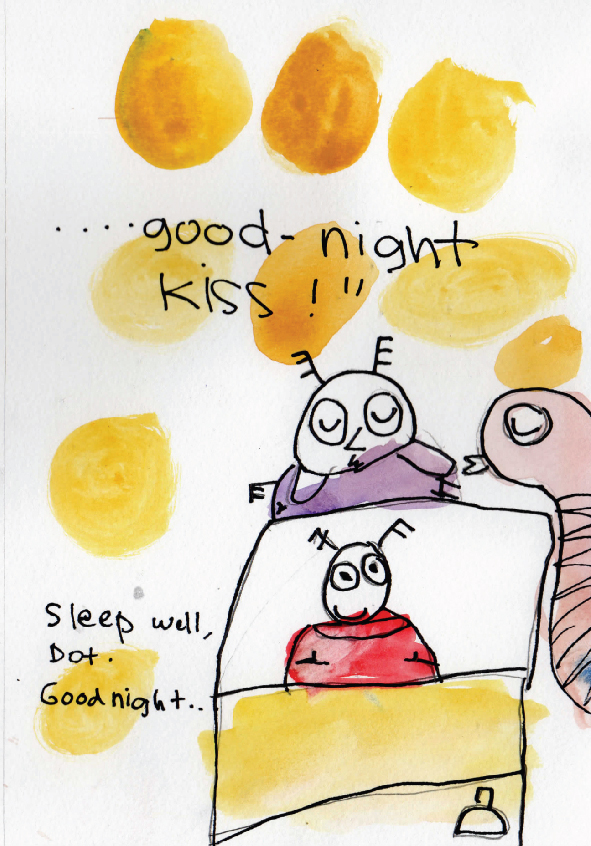 .....good-night
kiss!"
Sleep well,
Dot.
Good night..